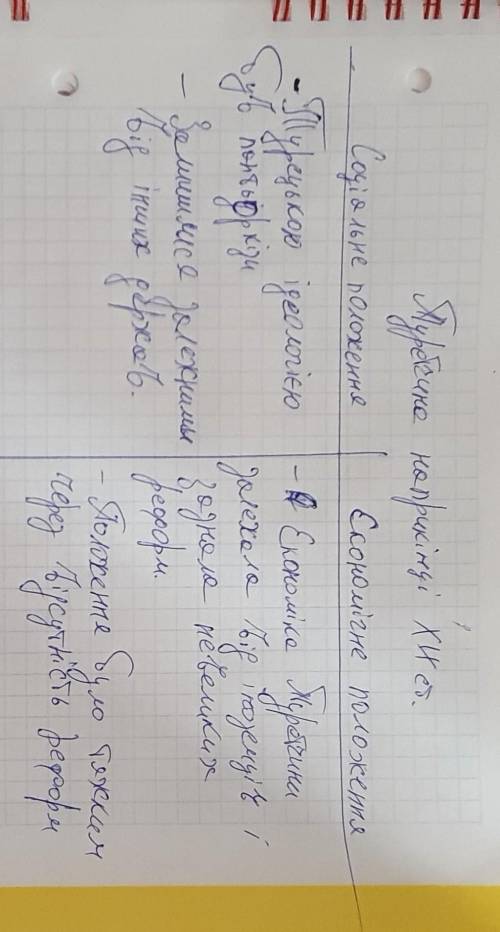 Туреччина наприкінці ХІХ ст.
Соціальне положення
Економічне положення
- Турецькою ідеологією
був пантюркізм
- Залишилися залежними
від інших держав.
- Економіка Туреччини
залежала від іноземців і
зазнала невеликих
реформ.
- Положення було тяжким
через відсутність реформ